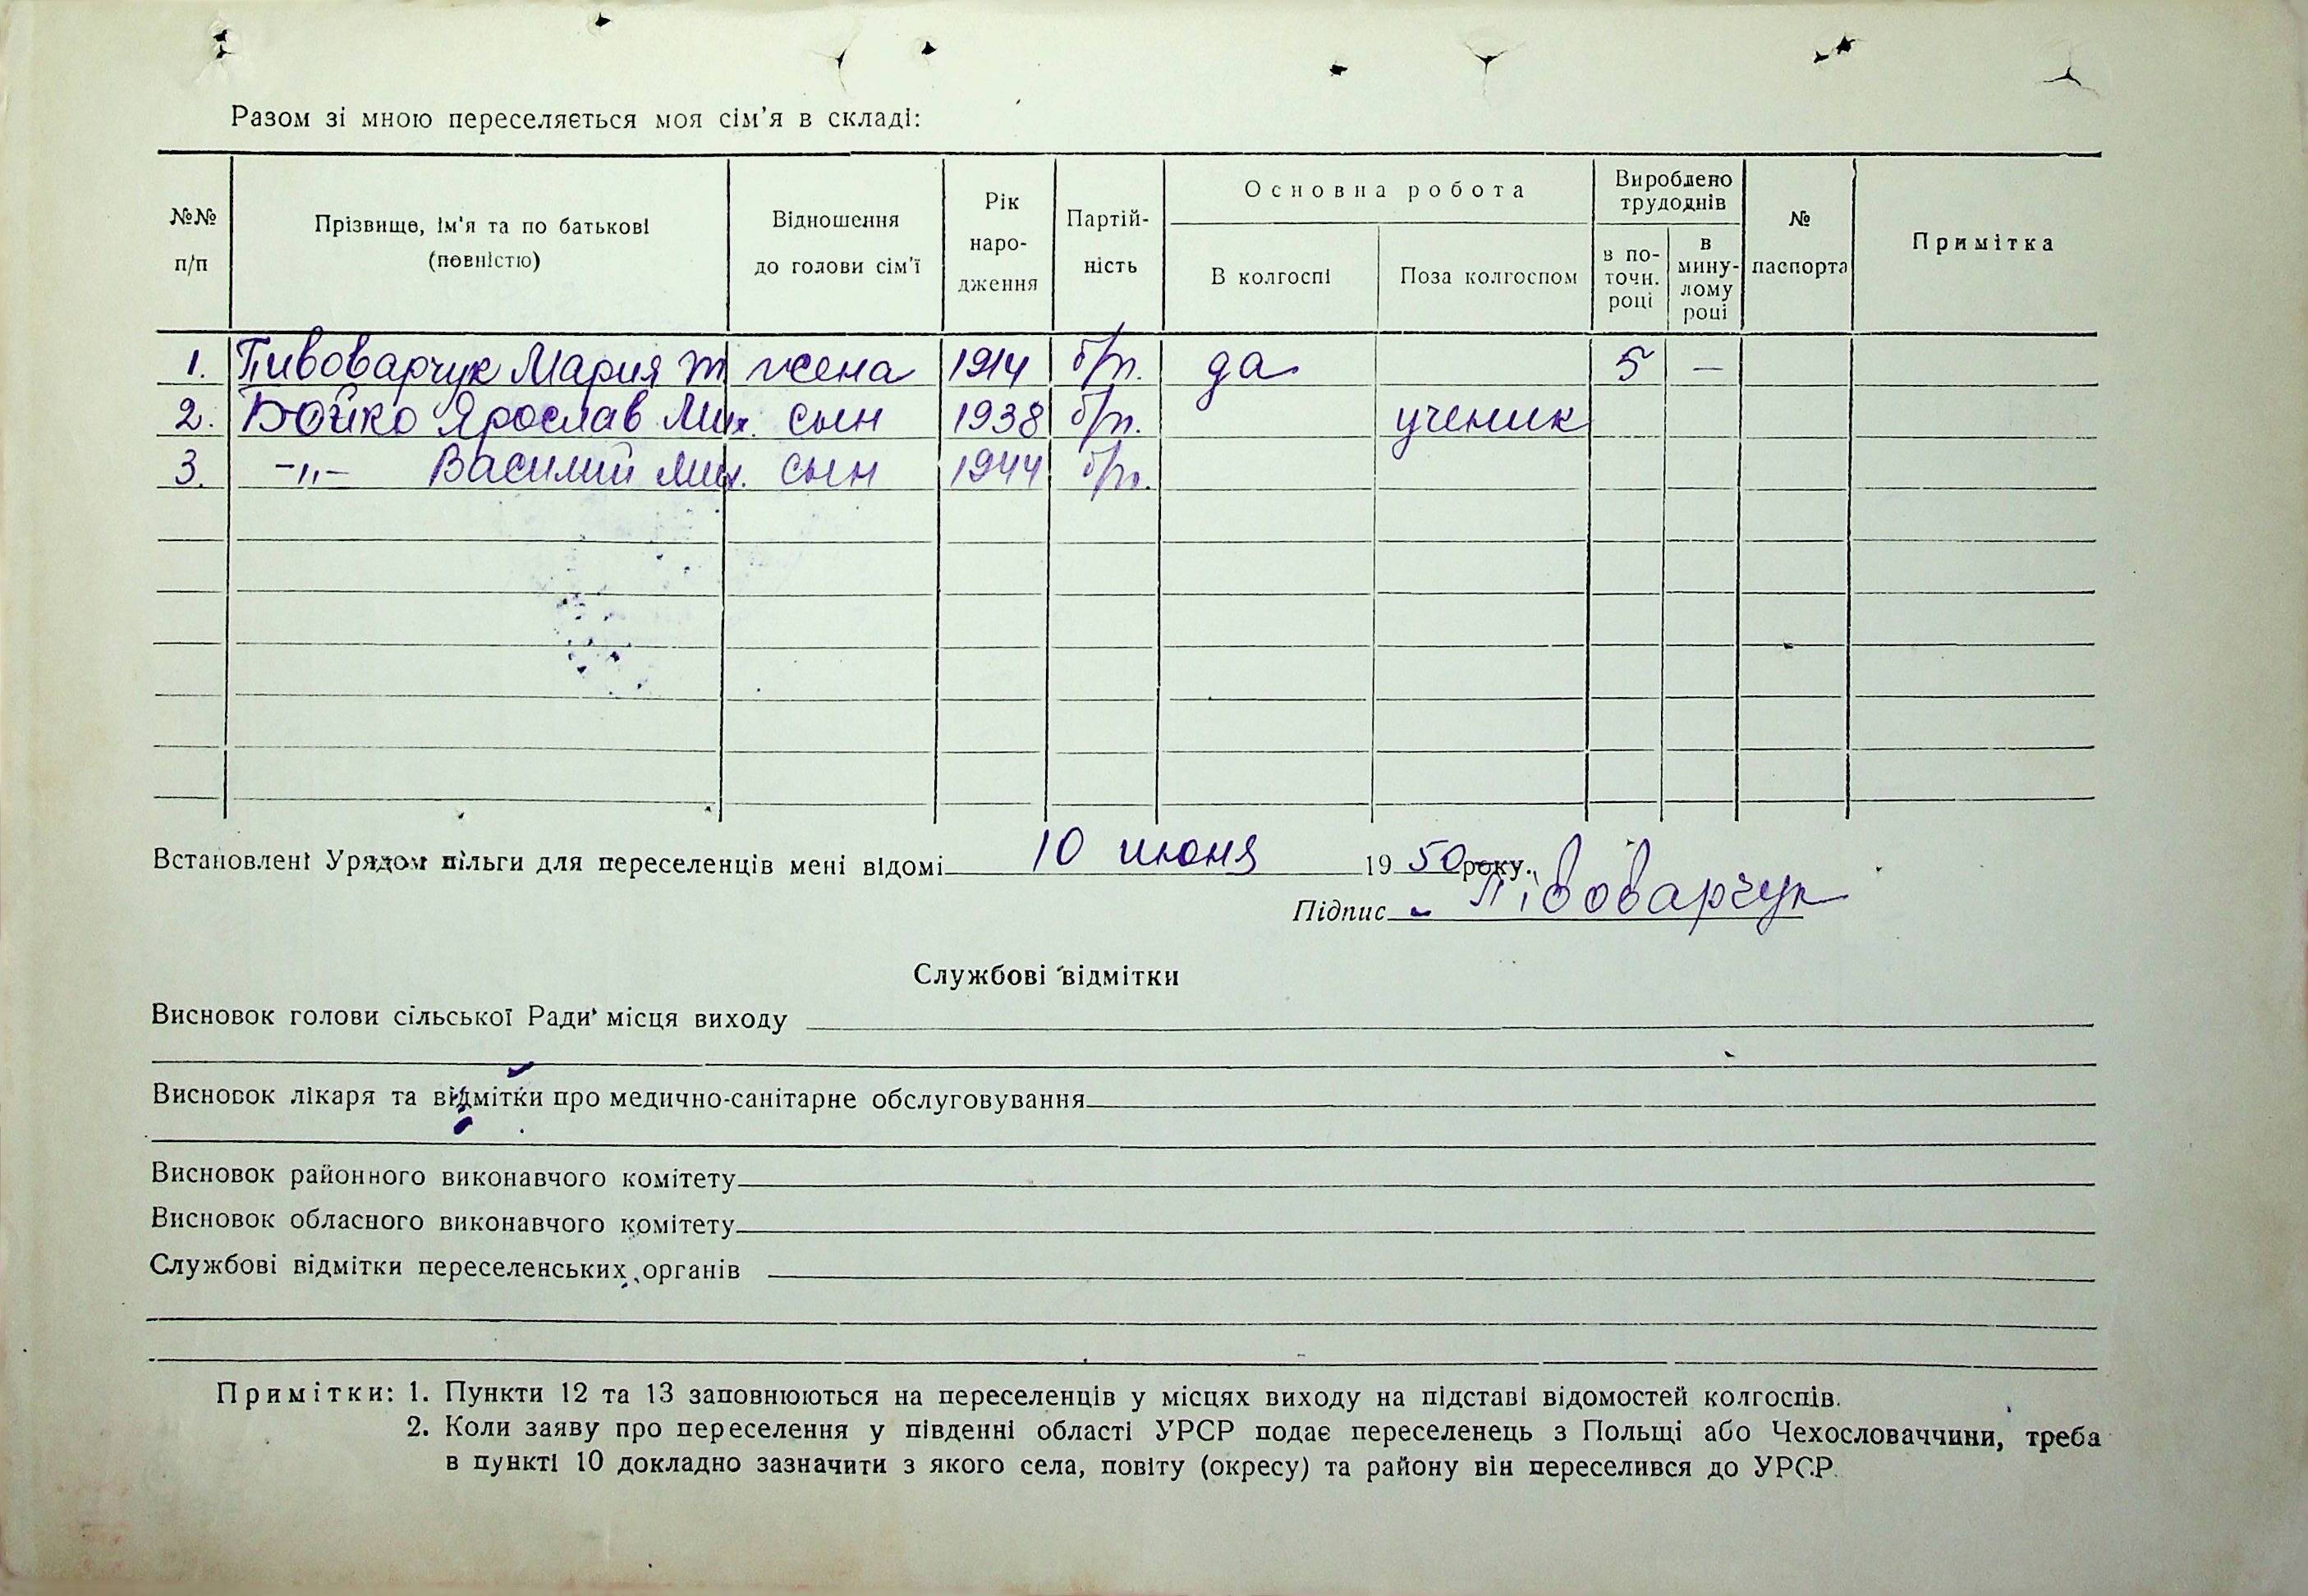 Разом зі мною переселяється моя сім'я в складі:
№№ п/п
Прізвище, ім'я та по батькові (повністю)
Відношення до голови сім'ї
Рік народження
Партійність
Основна робота
В колгоспі
Поза колгоспом
Вироблено трудоднів
в поточн. році
в минулому році
№ паспорта
Примітка
1. Пивоварчук Мария т жена 1914 б/п. да 5 —
2. Бойко Ярослав Мих. сын 1938 б/п. ученик
3. -„- Василий Мих. сын 1944 б/п.
Встановлені Урядом пільги для переселенців мені відомі 10 июня 1950 року.
Підпис Півоварчук
Службові відмітки
Висновок голови сільської Ради місця виходу
Висновок лікаря та відмітки про медично-санітарне обслуговування
Висновок районного виконавчого комітету
Висновок обласного виконавчого комітету
Службові відмітки переселенських органів
Примітки: 1. Пункти 12 та 13 заповнюються на переселенців у місцях виходу на підставі відомостей колгоспів.
2. Коли заяву про переселення у південні області УРСР подає переселенець з Польщі або Чехословаччини, треба
в пункті 10 докладно зазначити з якого села, повіту (окресу) та району він переселився до УРСР.